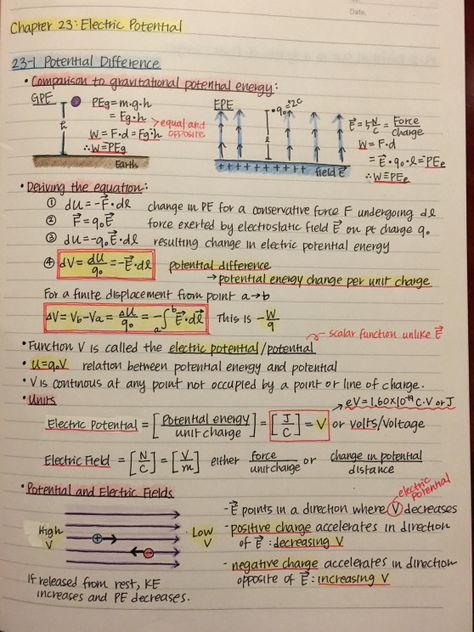 Date.
Chapter 23: Electric Potential
23-1 Potential Difference
• Comparison to gravitational potential energy:
GPE
PEg = m·g·h
= Fg·h
W = F·d = Fg·h
∴ W = PEg
equal and opposite
h
Earth
EPE
q₀ = 2C
E⃗ = 5 N/C = Force/charge
W = F·d
= E⃗·q₀·l = PEe
∴ W = PEe
field E⃗
+ + + + + + + + + + +
• Deriving the equation:
① dU = -F⃗·dl change in PE for a conservative force F undergoing dl
② F⃗ = q₀E⃗ force exerted by electrostatic field E⃗ on pt charge q₀
③ dU = -q₀E⃗·dl resulting change in electric potential energy
④ dV = dU/q₀ = -E⃗·dl potential difference
→ potential energy change per unit charge
For a finite displacement from point a→b
ΔV = Vb - Va = ΔU/q₀ = -∫ₐᵇ E⃗·dl⃗ This is -W/q
→ scalar function unlike E⃗
• Function V is called the electric potential/potential
• U = q₀V relation between potential energy and potential
• V is continous at any point not occupied by a point or line of charge.
• Units
eV = 1.60×10⁻¹⁹ C·V or J
Electric Potential = [Potential energy/unit charge] = [J/C] = V or volts/voltage
Electric Field = [N/C] = [V/m] either force/unit charge or change in potential/distance
• Potential and Electric Fields
electric potential
High V
+
-
Low V
- E⃗ points in a direction where V decreases
- positive charge accelerates in direction
of E⃗: decreasing V
- negative charge accelerates in direction
opposite of E⃗: increasing V
If released from rest, KE
increases and PE decreases.